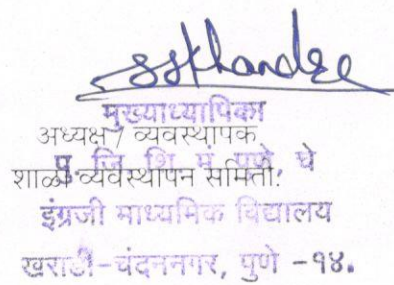 SSKhandre
मुख्याध्यापिका
अध्यक्ष / व्यवस्थापक
पु. जि. शि. मं. पुणे, चे
शाळा व्यवस्थापन समिती.
इंग्रजी माध्यमिक विद्यालय
खराडी-चंदननगर, पुणे -१४.